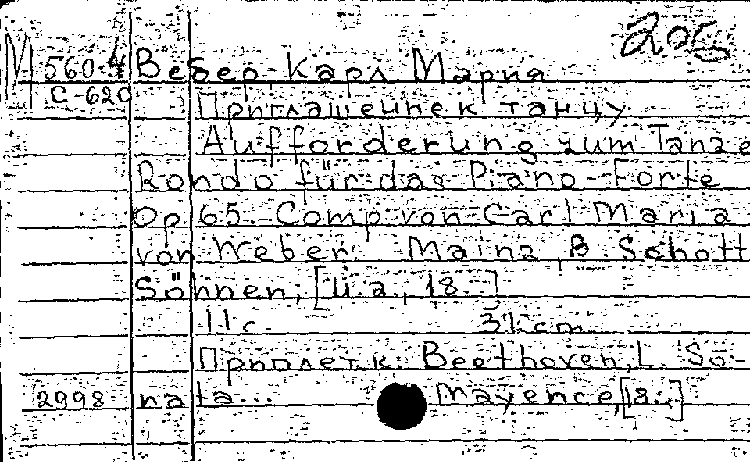 205
М 560.4 Вебер, Карл Мария
С-620 Приглашение к танцу
Aufforderung zum Tanze
Rondo für das Piano-Forte
Op 65 Comp von Carl Maria
von Weber. Mainz, B. Schott
Söhnen, [u.a., 18..]
11 с. 31 cm.
Приплет. к: Beethoven, L. So-
2998 nata... Mayence, [18..]